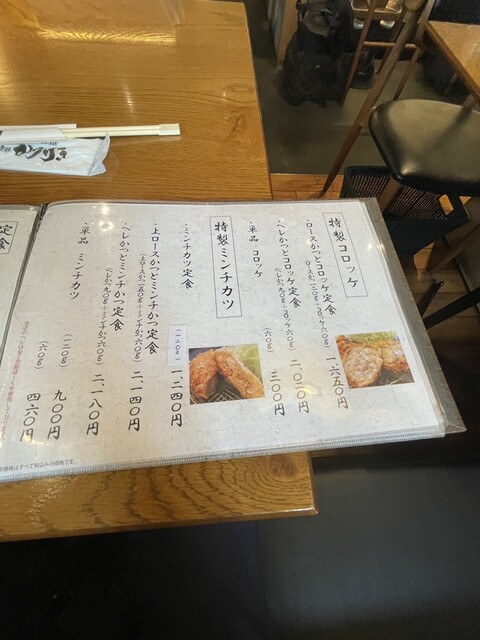 特製コロッケ
・ロースかつとコロッケ定食 一、六五〇円
(ロースかつ一二〇g+コロッケ六〇g)
・ヘレかつとコロッケ定食 二、〇二〇円
(ヘレかつ九〇g+コロッケ六〇g)
・単品 コロッケ (六〇g) 三〇〇円
特製ミンチカツ
・ミンチカツ定食 (一二〇g) 一、二四〇円
・上ロースかつとミンチかつ定食 二、一四〇円
(上ロースかつ一五〇g+ミンチかつ六〇g)
・ヘレかつとミンチかつ定食 二、一八〇円
(ヘレかつ九〇g+ミンチかつ六〇g)
・単品 ミンチカツ (一二〇g) 九〇〇円
(六〇g) 四六〇円
価格はすべて税込みの価格です。
定食